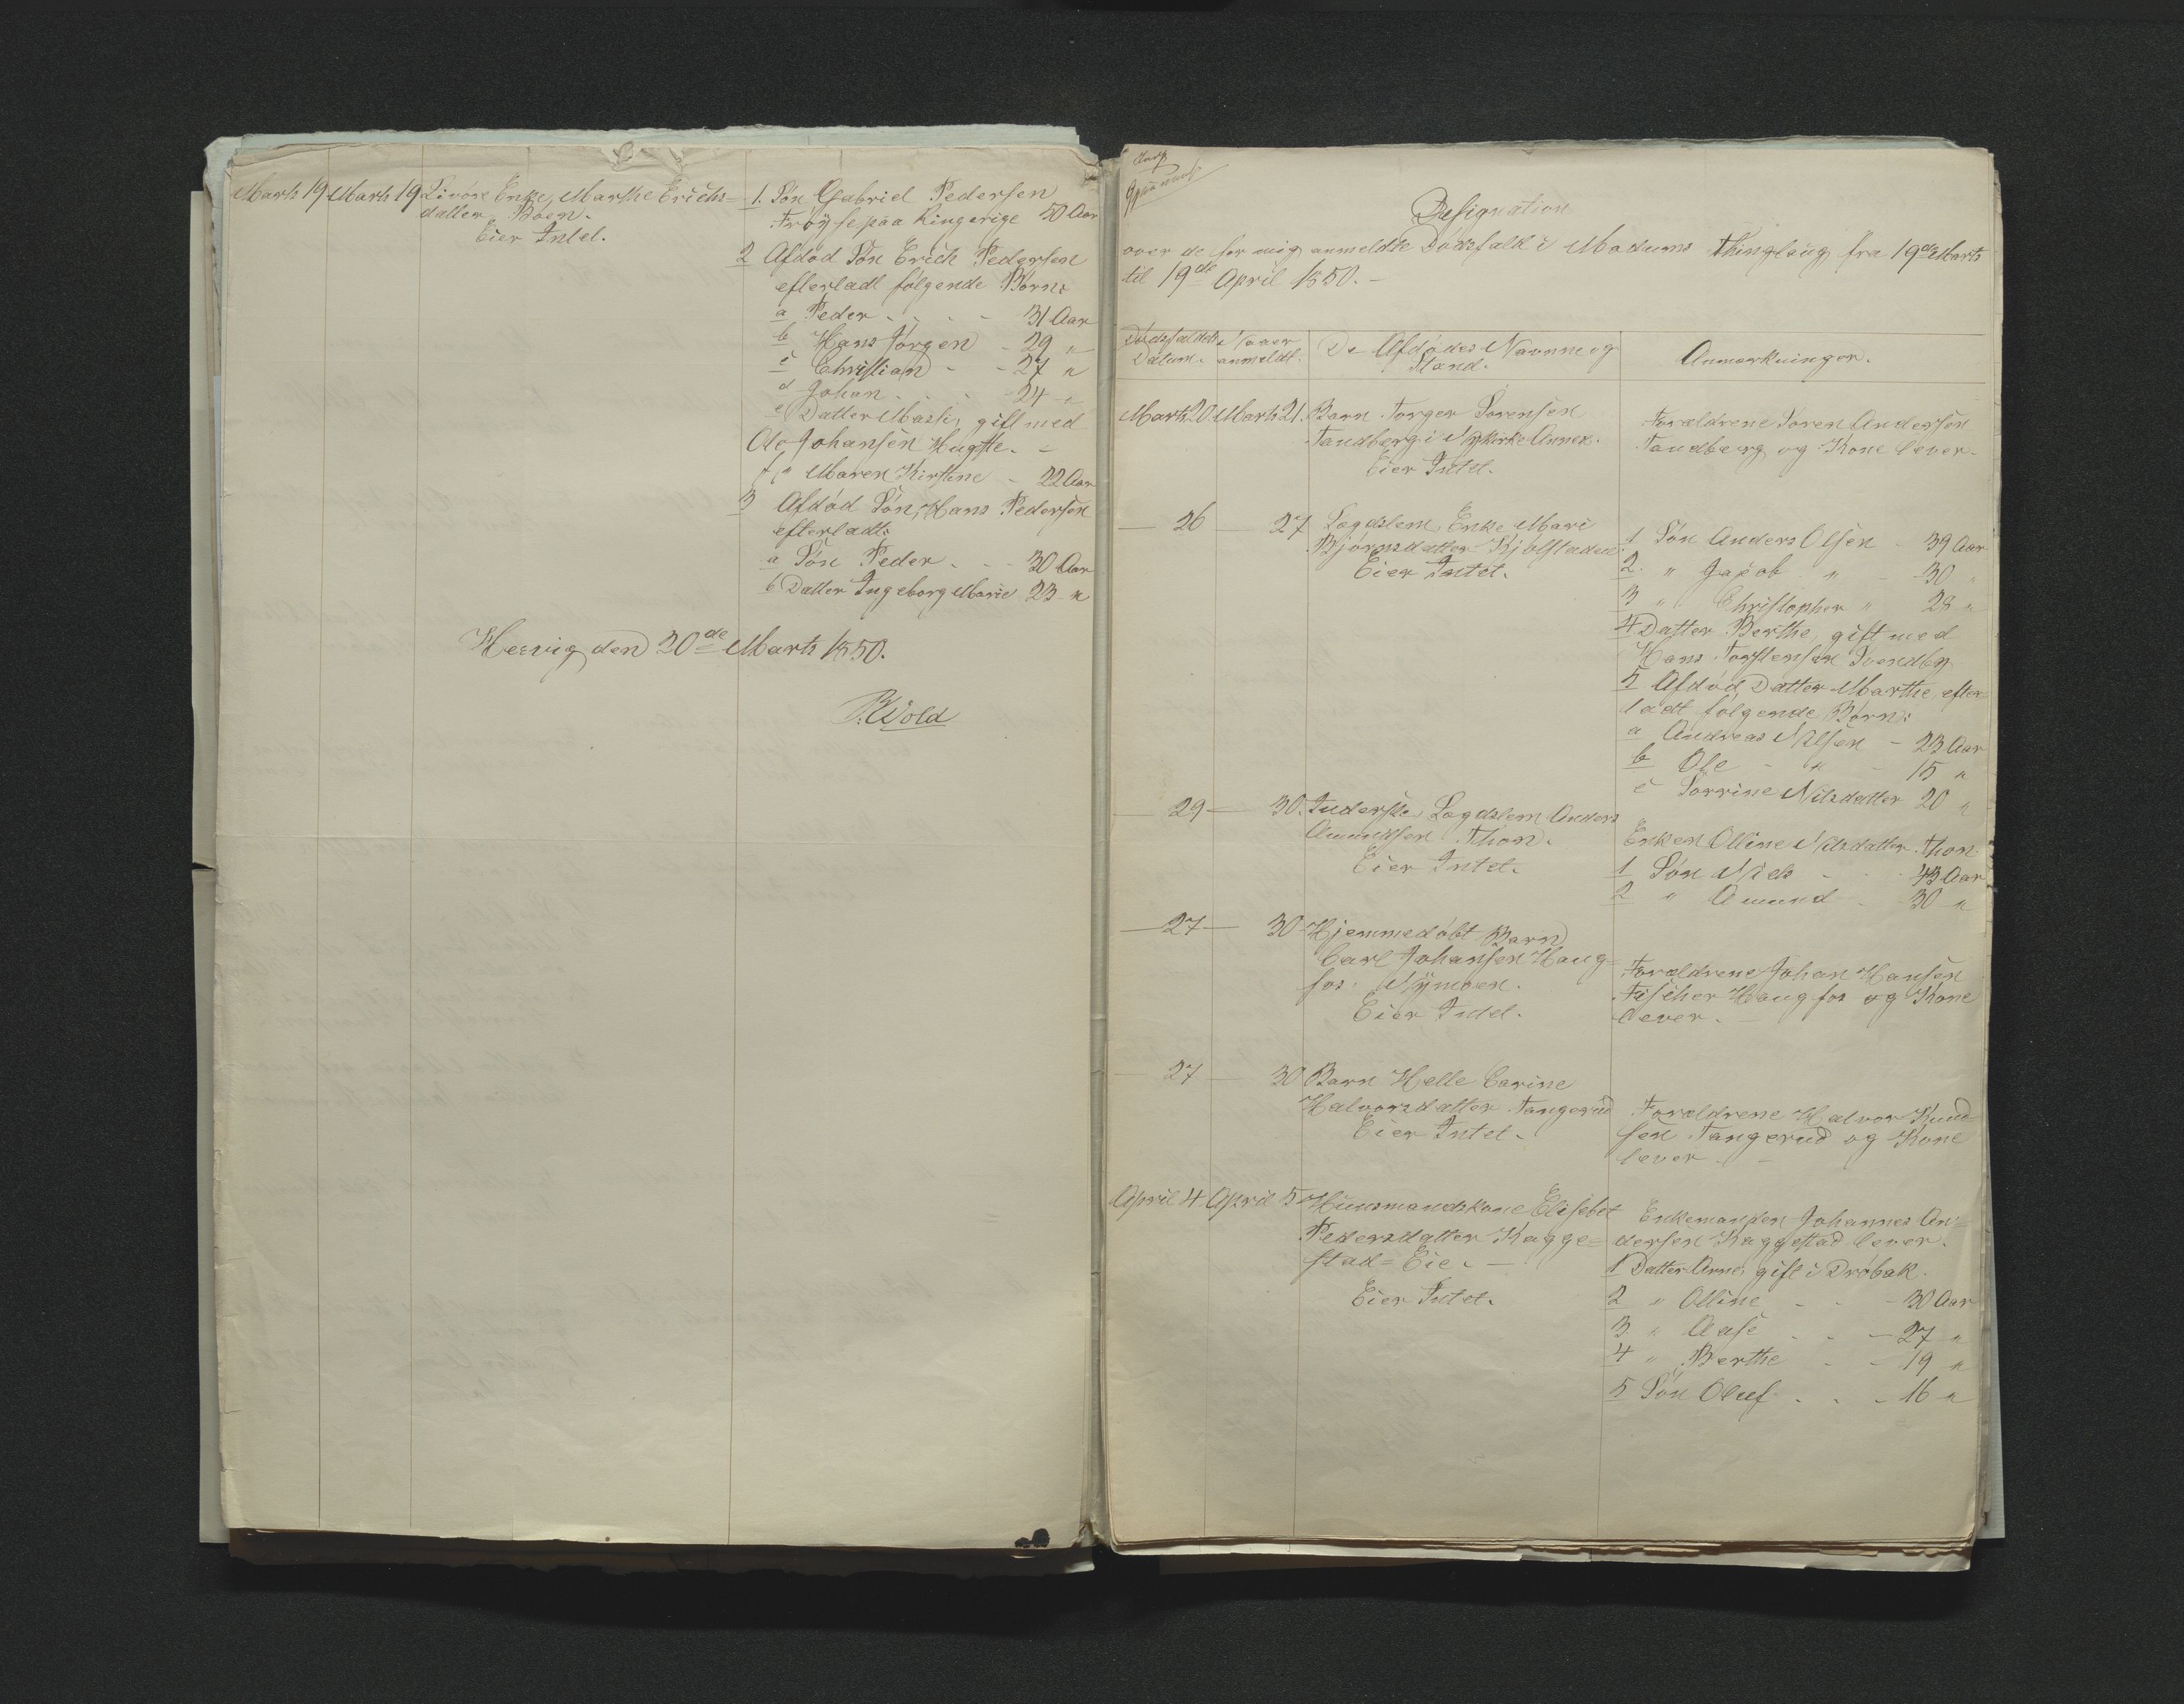 Marts 19 Marts 19 Livøre Enke, Marthe Erichs-
datter Boen.
Eier Intet.
1. Søn Gabriel Pedersen
Frøyse paa Ringerige 50 Aar
2 Afdød Søn Erich Pedersen
efterladt følgende Børn:
a Peder - - - - 31 Aar
b Hans Jørgen - 29 "
c Christian - - 27 "
d Johan - - - 24 "
e Datter Masti, gift med
Ole Johansen Hugste. -
f " Maren Kirstine - 22 Aar
3 Afdød Søn, Hans Pedersen
efterladt:
a Søn Peder - - - 30 Aar
b Datter Ingeborg Marie 23 "
Hervig den 20de Marts 1850.
P. Wold
Designation
over de for mig anmeldte Dødsfald i Modums Thinglaug fra 19de Marts
til 19de April 1850. -
Dødsfaldets Datum.
Naar anmeldt.
De Afdødes Navnne og
Stand.
Anmærkninger.
Marts 20. Marts 21. Barn Torger Sørensen
Tandberg i Nykirke Annex.
Eier Intet.
Forældrene Søren Andersen
Tandberg og Kone lever.
— 26 — 27 Lægdslem, Enke Mari
Bjørnsdatter Kjølstadeie.
Eier Intet.
1 Søn Anders Olsen - 39 Aar
2. " Jacob " - 30 "
3 " Christopher " 28 "
4 Datter Berthe, gift med
Hans Torstensen Svendby
5 Afdød Datter Marthe, efter-
ladt følgende Børn:
a Andreas Nilsen - 23 Aar
b Ole - " - 15 "
c Sørrine Nilsdatter 20 "
— 29 — 30. Inderste, Lægdslem Anders
Amundsen Thon.
Eier Intet.
Enken Olline Nilsdatter Thon
1 Søn Niels - - - 43 Aar
2 " Amund - 30 "
— 27 — 30 Hjemmedøbt Barn
Carl Johansen Haug-
fos Nymoen.
Eier Intet.
Forældrene Johan Hansen
Fischer Haugfos og Kone
lever.
— 27 — 30 Barn Helle Carine
Halvorsdatter Tangerud
Eier Intet.
Forældrene Halvor Knud-
sen Tangerud og Kone
lever. -
April 4 April 5 Huusmandskone Elisebet
Pedersdatter Kagge-
stad-Eie. —
Eier Intet.
Enkemanden Johannes An-
dersen Kaggestad lever.
1 Datter Anne, gift i Drøbak.
2 " Olline - - - 30 Aar
3 " Aase - - - 27 "
4 " Berthe - - 19 "
5 Søn Oluf - - - 16 "